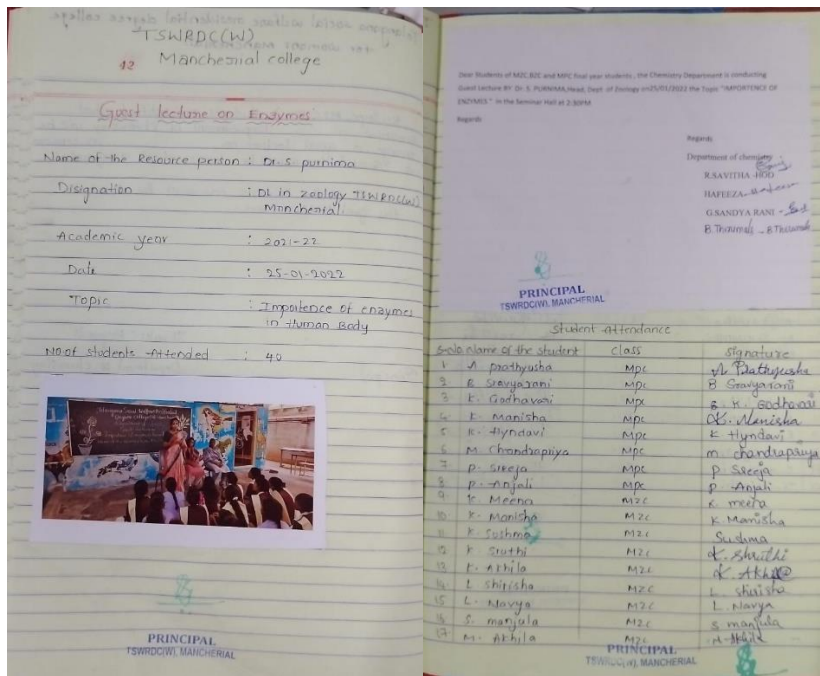 TSWRDC(W)
42
Mancherial college
Guest lecture on Enzymes
Name of the Resource person : Dr. S purnima
Disignation : DL in Zoology TSWRDC(W)
Mancherial.
Academic year : 2021-22
Date : 25-01-2022
Topic : Importence of enzymes
in Human Body
No.of students Attended : 40
PRINCIPAL
TSWRDC(W), MANCHERIAL
Dear Students of MZC,BZC and MPC final year students , the Chemistry Department is conducting
Guest Lecture BY Dr. S. PURNIMA,Head, Dept. of Zoology on25/01/2022 the Topic "IMPORTENCE OF
ENZYMES " in the Seminar Hall at 2:30PM
Regards
Regards
Department of chemistry
R.SAVITHA -HOD
HAFEEZA
G.SANDYA RANI -
B. Thirumala - B Thirumala
PRINCIPAL
TSWRDC(W), MANCHERIAL
Student Attendance
S.No. Name of the student Class Signature
1. A prathyusha MPC A Prathyusha
2. B Sravyarani MPC B Sravyarani
3 K. Godhavari MPC K. Godhavari
4. K. Manisha MPC K. Manisha
5 K. Hyndavi MPC K Hyndavi
6 M Chandrapriya MPC m chandrapriya
7 P. Sreeja MPC P Sreeja
8 P. Anjali MPC P Anjali
9 K Meena MZC K meena
10 K. Manisha MZC K Manisha
11 K. Sushma MZC Sushma
12 K Sruthi MZC K. Shruthi
13 K. Akhila MZC K. Akhila
14 L Shirisha MZC L. Shirisha
15 L. Navya MZC L. Navya
16 S. manjula MZC S manjula
17. M. Akhila MZC M. Akhila
PRINCIPAL
TSWRDC(W), MANCHERIAL